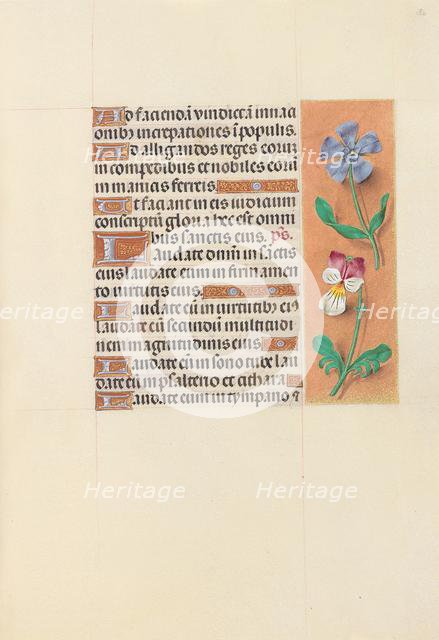 Ad faciendā vindictam in naci
onibꝫ increpationes ī populis.
Ad alligandos reges eorū
in compedibus et nobiles eorū
in manicis ferreis
Ut faciant in eis iudicium
conscriptū gloria hec est omni
bus sanctis eius. ps.
Laudate dominū in sāctis
eius laudate eum in firmamē
to virtutis eius.
Laudate eū in virtutibꝫ eiꝰ
laudate eū secundū multitudi
nem magnitudinis eius
Laudate eū in sono tube lau
date eū in psalterio et cithara
Laudate eum in tympano ⁊
Heritage
Heritage
Heritage
Heritage
Heritage
Heritage
Heritage